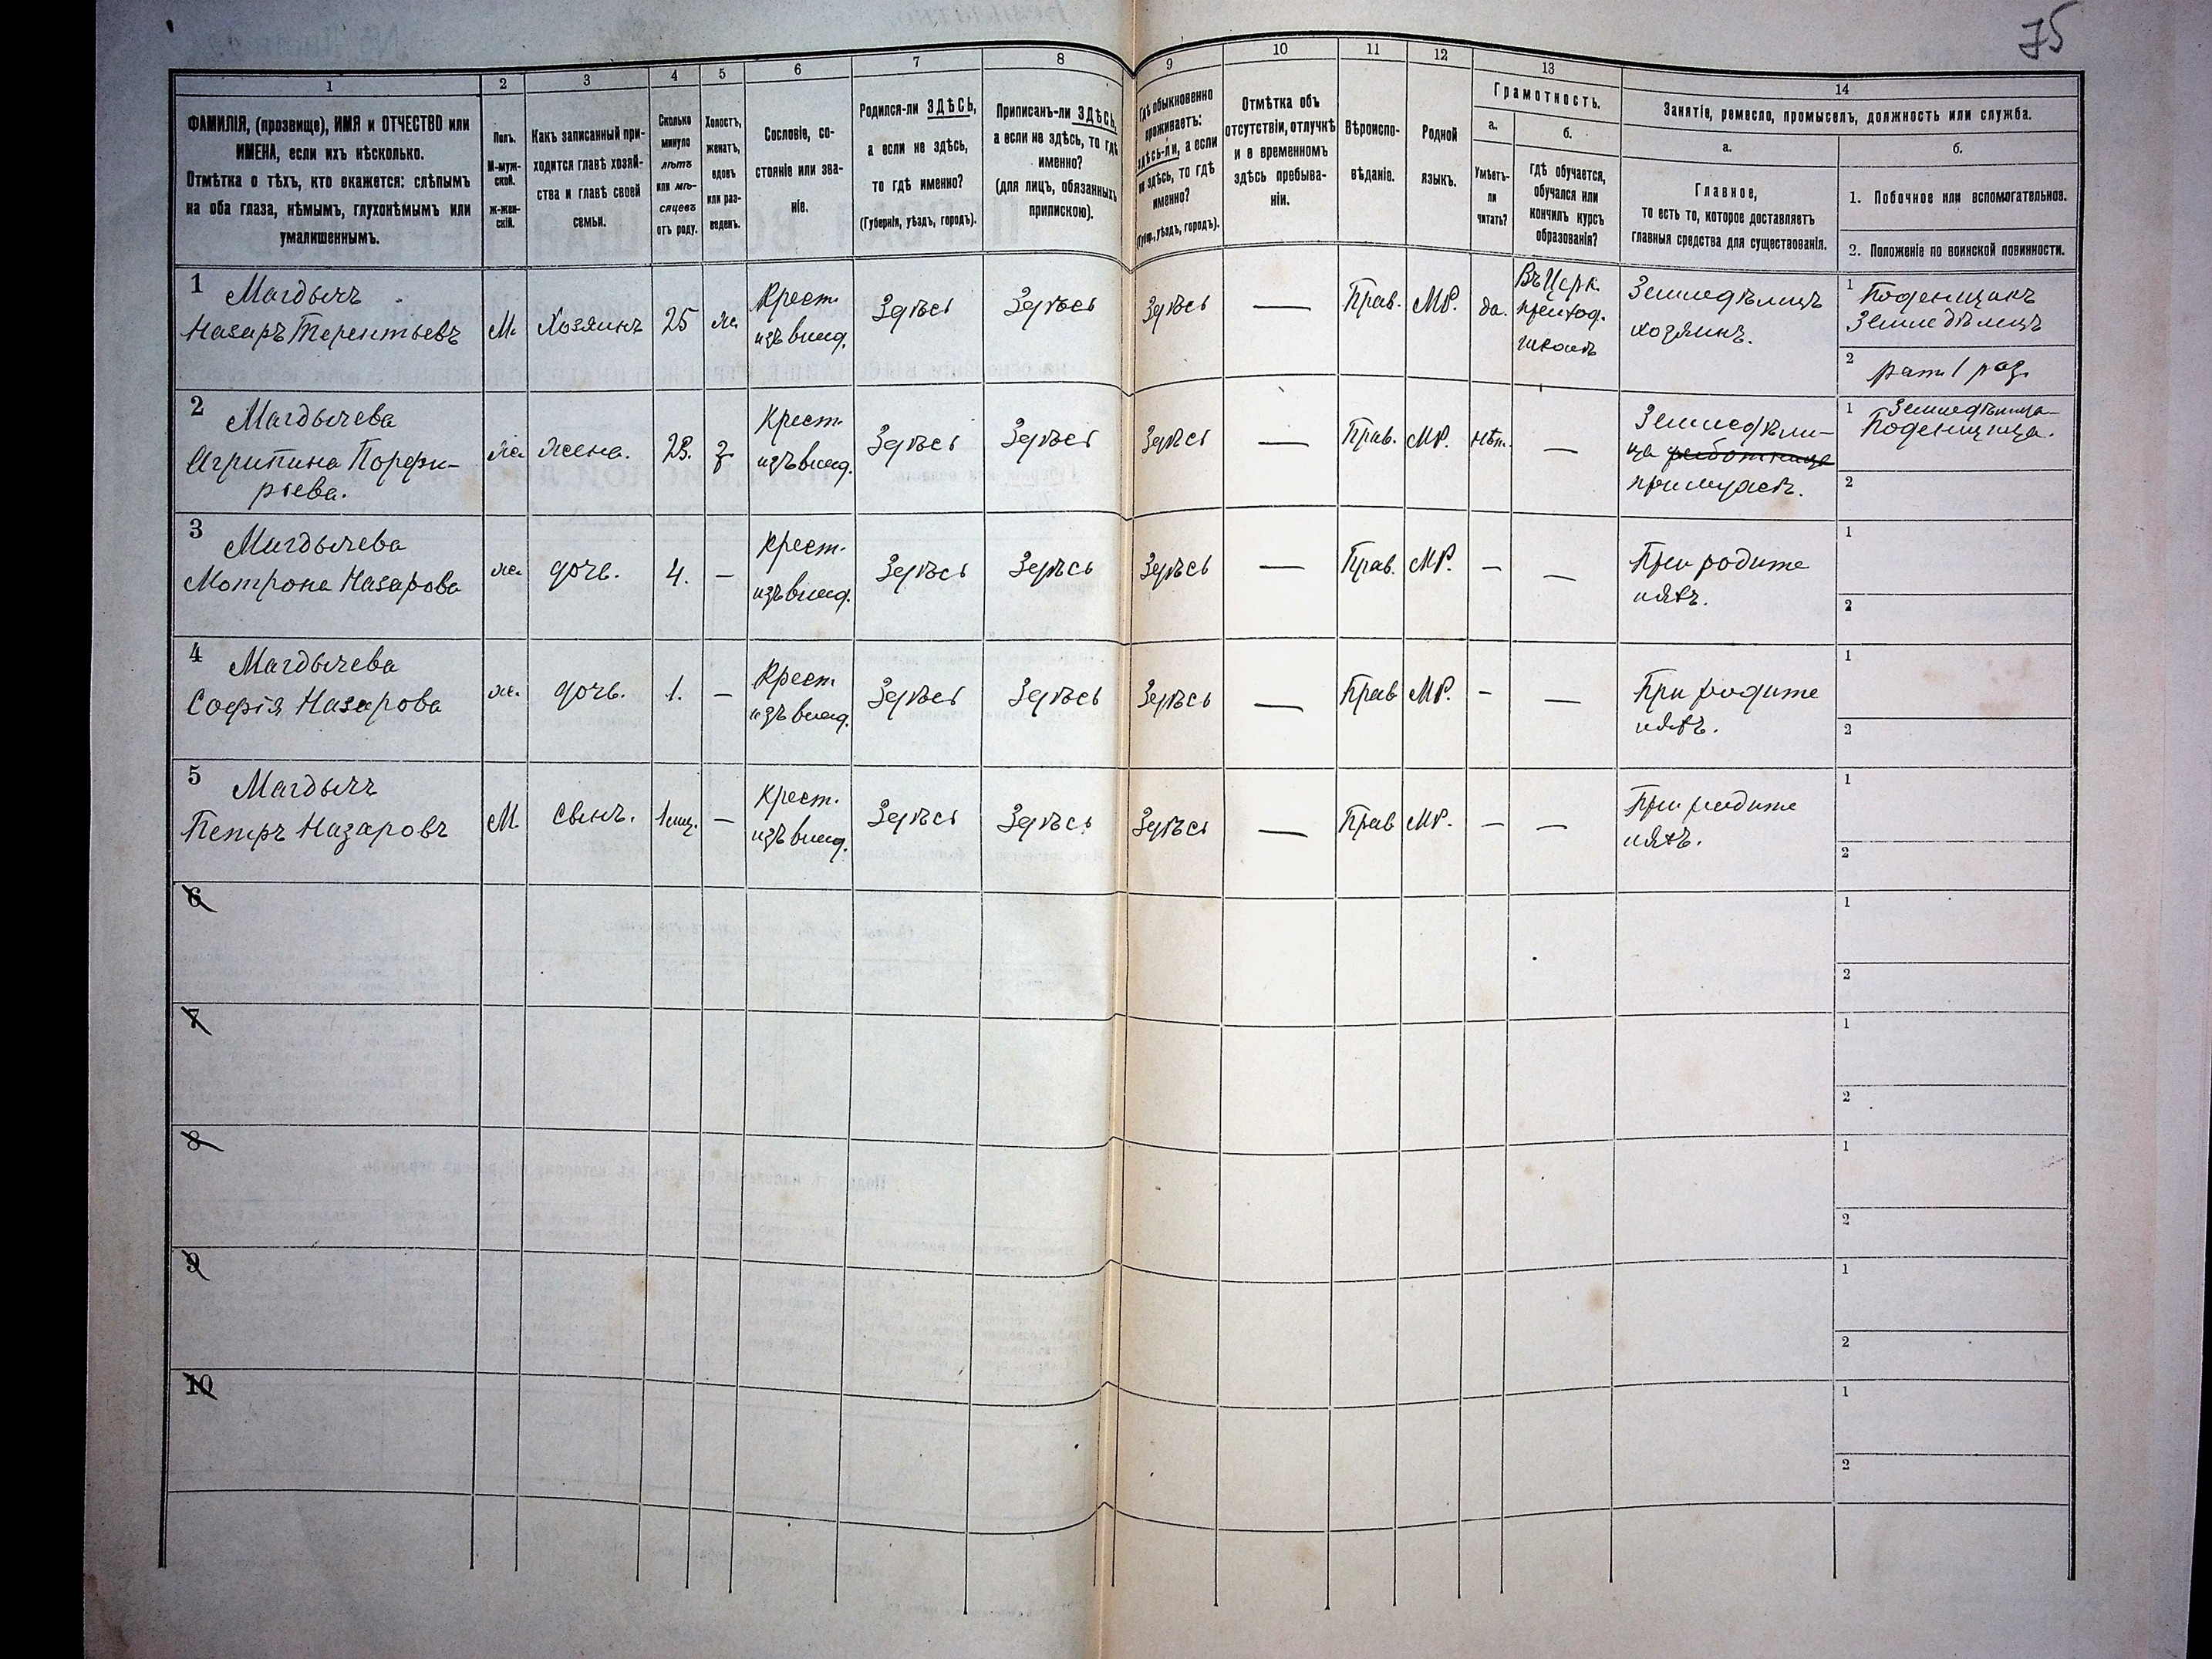 75
1
2
3
4
5
6
7
8
9
10
11
12
13
14
ФАМИЛІЯ, (прозвище), ИМЯ и ОТЧЕСТВО или
ИМЕНА, если ихъ нѣсколько.
Отмѣтка о тѣхъ, кто окажется: слѣпымъ
на оба глаза, нѣмымъ, глухонѣмымъ или
умалишеннымъ.
Полъ.
М-муж-
ской.
ж-жен-
скій.
Какъ записанный при-
ходится главѣ хозяй-
ства и главѣ своей
семьи.
Сколько
минуло
лѣтъ
или мѣ-
сяцевъ
отъ роду.
Холостъ,
женатъ,
вдовъ
или раз-
веденъ.
Сословіе, со-
стояніе или зва-
ніе.
Родился-ли ЗДѢСЬ,
а если не здѣсь,
то гдѣ именно?
(Губернія, уѣздъ, городъ).
Приписанъ-ли ЗДѢСЬ,
а если не здѣсь, то гдѣ
именно?
(для лицъ, обязанныхъ
припискою).
Гдѣ обыкновенно
проживаетъ:
здѣсь-ли, а если
не здѣсь, то гдѣ
именно?
(Губер., уѣздъ, городъ).
Отмѣтка объ
отсутствіи, отлучкѣ
и о временномъ
здѣсь пребыва-
ніи.
Вѣроиспо-
вѣданіе.
Родной
языкъ.
Грамотность.
а.
Умѣетъ-
ли
читать?
б.
гдѣ обучается,
обучался или
кончилъ курсъ
образованія?
Занятіе, ремесло, промыселъ, должность или служба.
а.
Главное,
то есть то, которое доставляетъ
главныя средства для существованія.
б.
1. Побочное или вспомогательное.
2. Положеніе по воинской повинности.
1
Магдычъ
Назаръ Терентьевъ
М.
Хозяинъ
25
ж.
Крест.
изъ влад.
Здѣсь
Здѣсь
Здѣсь
—
Прав.
МР.
да.
Въ Церк
приход.
школѣ
Земледѣлецъ
хозяинъ.
1 Поденщикъ
Земледѣлецъ
2 рат. 1 раз.
2
Магдычева
Агрипина Порфи-
рьева.
ж.
жена.
23.
з.
Крест.
изъ влад.
Здѣсь
Здѣсь
Здѣсь
—
Прав.
МР.
нѣт.
—
Земледѣли-
ца работница
при мужѣ.
1
Поденщица.
2
3
Магдычева
Мотрона Назарова
ж.
дочь.
4.
—
Крест.
изъ влад.
Здѣсь
Здѣсь
Здѣсь
—
Прав.
МР.
—
—
При родите
ляхъ.
1
2
4
Магдычева
Софія Назарова
ж.
дочь.
1.
—
Крест.
изъ влад.
Здѣсь
Здѣсь
Здѣсь
—
Прав
МР.
-
—
При родите
ляхъ.
1
2
5
Магдычъ
Петръ Назаровъ
М.
сынъ.
1 мц.
—
Крест.
изъ влад.
Здѣсь
Здѣсь
Здѣсь
—
Прав
МР.
—
—
При родите
ляхъ.
1
2
6
1
2
7
1
2
8
1
2
9
1
2
10
1
2